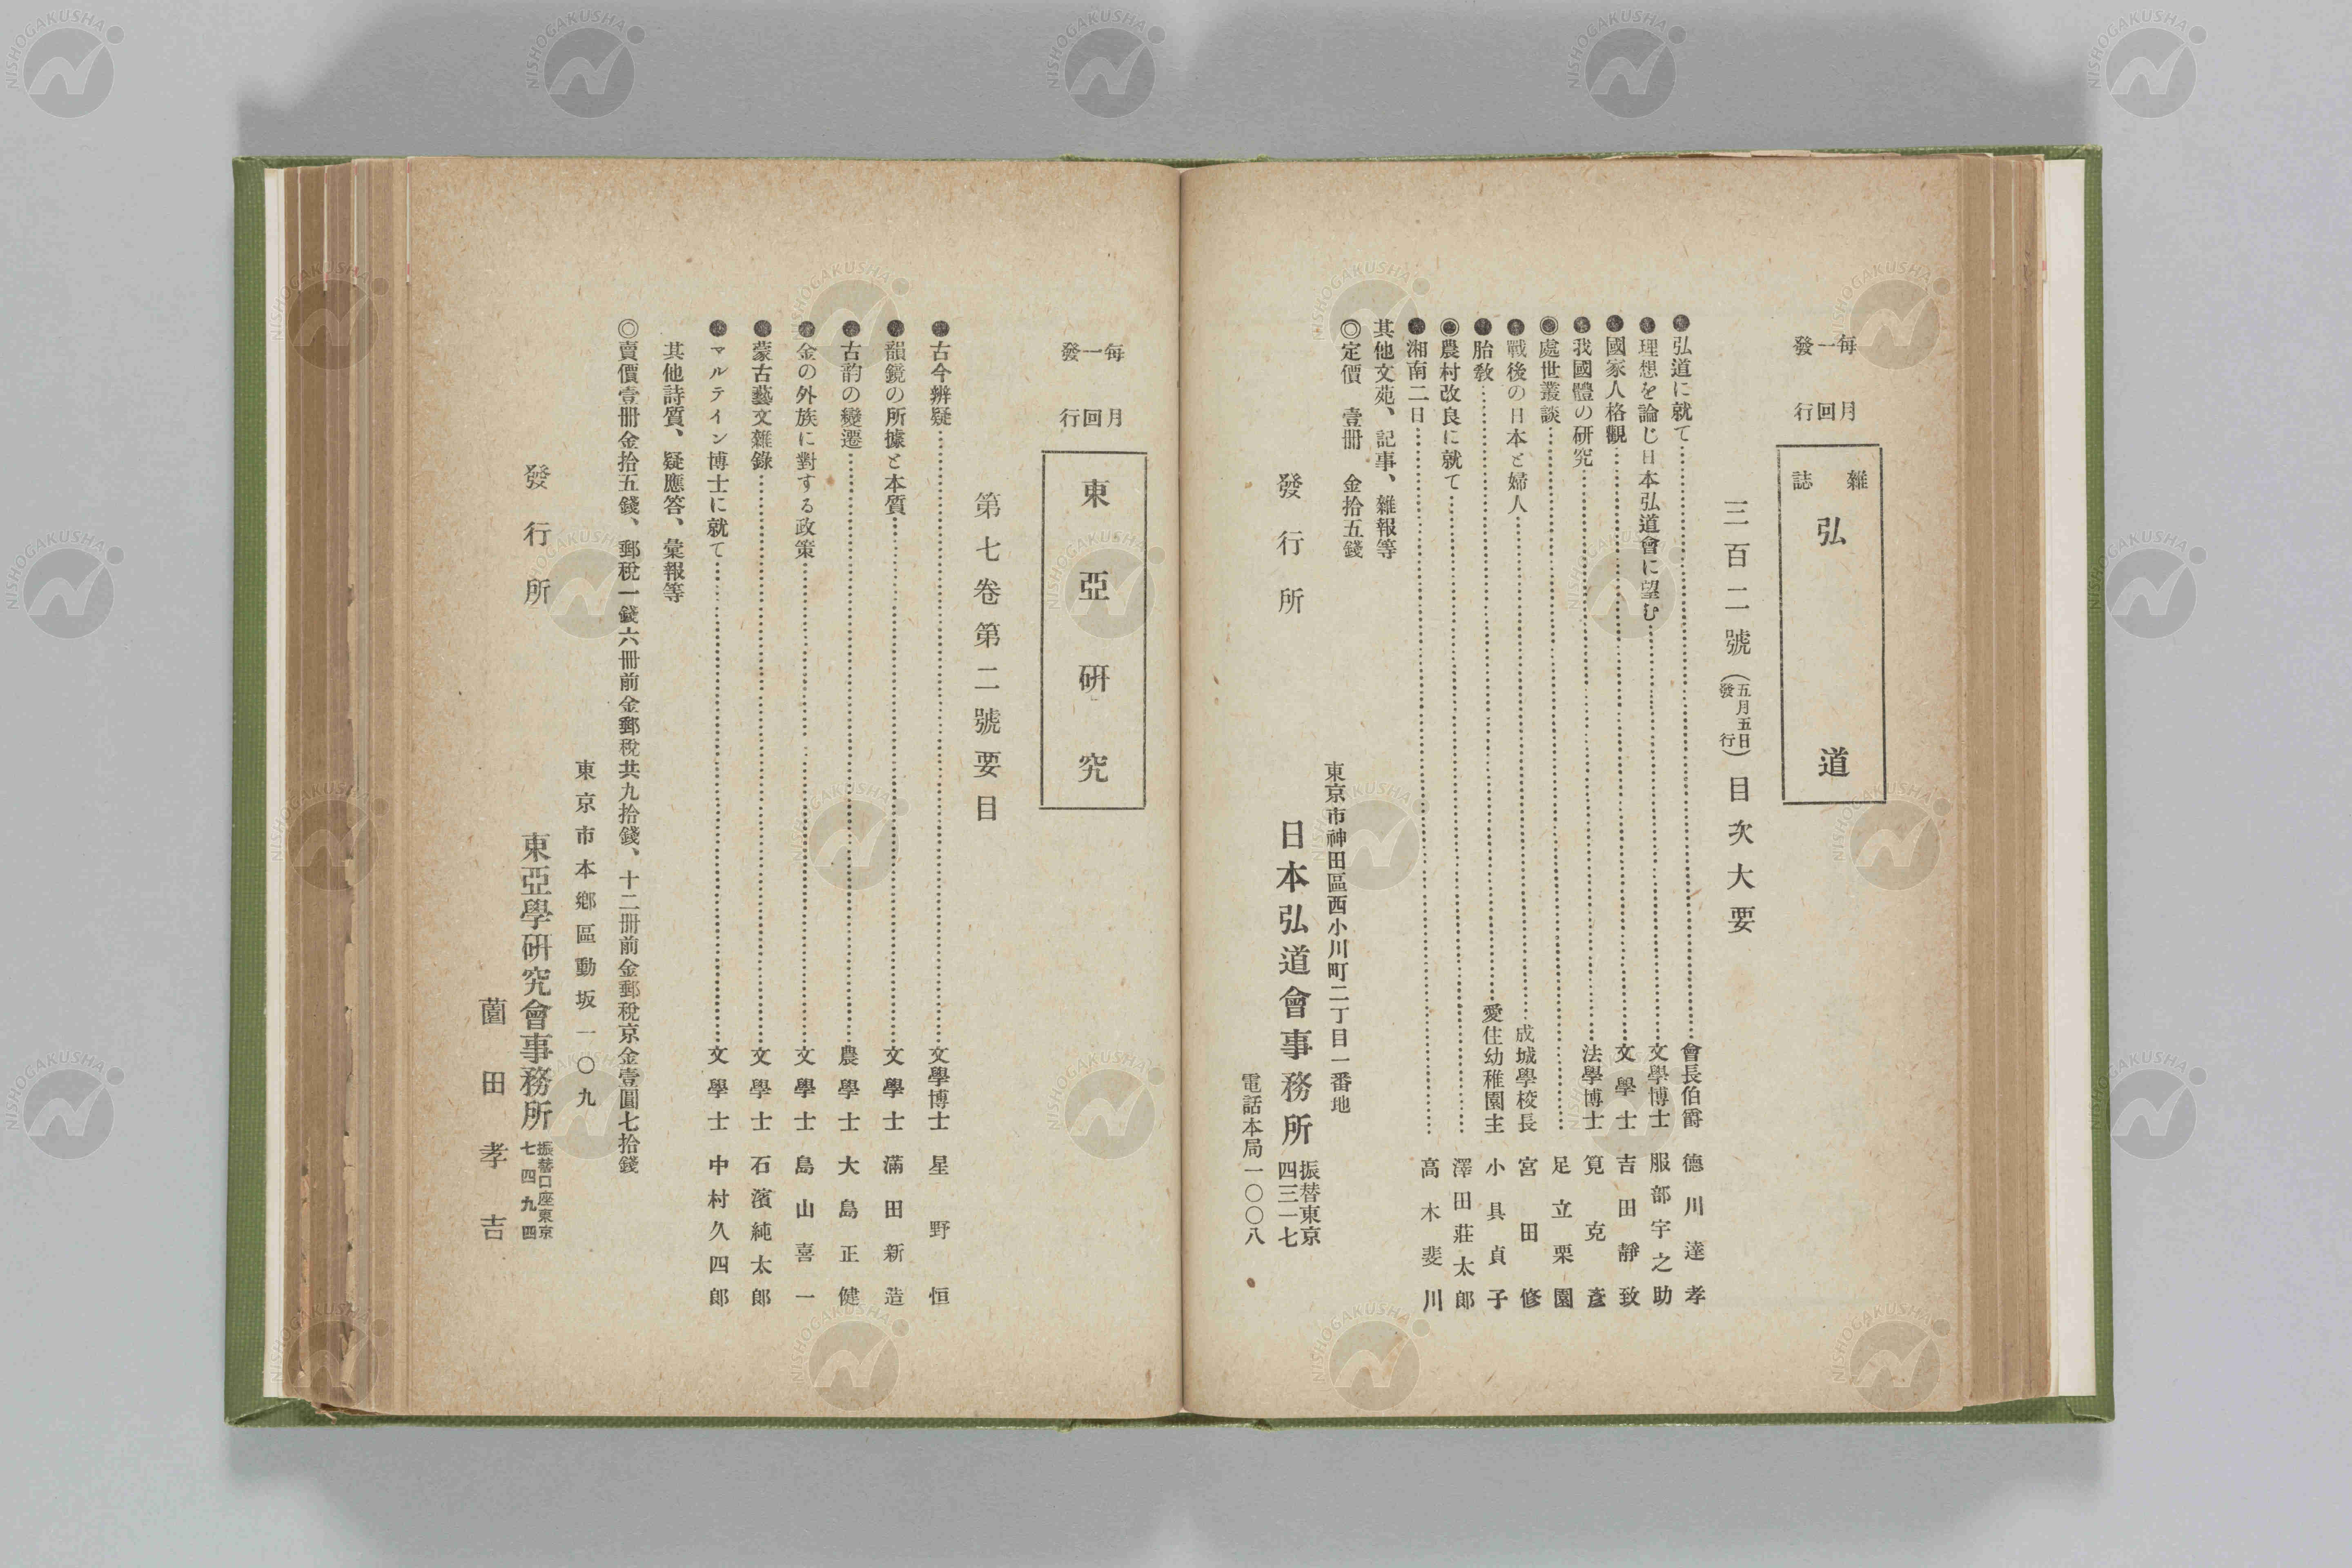 毎月一回發行
雜誌 弘道
三百二號（五月五日發行）目次大要
●弘道に就て……會長伯爵 德川達孝
●理想を論じ日本弘道會に望む……文學博士 服部宇之助
●國家人格觀……文學士 吉田靜致
●我國體の研究……法學博士 筧克彥
◉處世叢談……足立栗園
●戰後の日本と婦人……成城學校長 宮田修
●胎敎……愛住幼稚園主 小具貞子
◉農村改良に就て……澤田莊太郎
●湘南二日……高木斐川
其他文苑、記事、雜報等
◎定價 壹冊 金拾五錢
東京市神田區西小川町二丁目一番地
發行所 日本弘道會事務所 振替東京四三一七
電話本局一〇〇八
毎月一回發行
東亞研究
第七卷第二號要目
●古今辨疑……文學博士 星野恒
●韻鏡の所據と本質……文學士 滿田新造
●古韵の變遷……農學士 大島正健
●金の外族に對する政策……文學士 島山喜一
●蒙古藝文雜錄……文學士 石濱純太郎
●マルテイン博士に就て……文學士 中村久四郎
其他詩質、疑應答、彙報等
◎賣價壹冊金拾五錢、郵稅一錢六冊前金郵稅共九拾錢、十二冊前金郵稅京金壹圓七拾錢
東京市本鄉區動坂一〇九
發行所 東亞學研究會事務所 振替口座東京七四九四
薗田孝吉